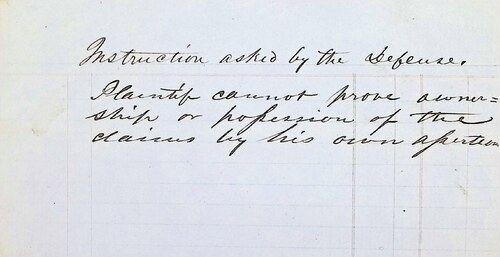 Instruction asked by the Defense.
Plaintiff cannot prove owner=
ship or possession of the
claims by his own assertion